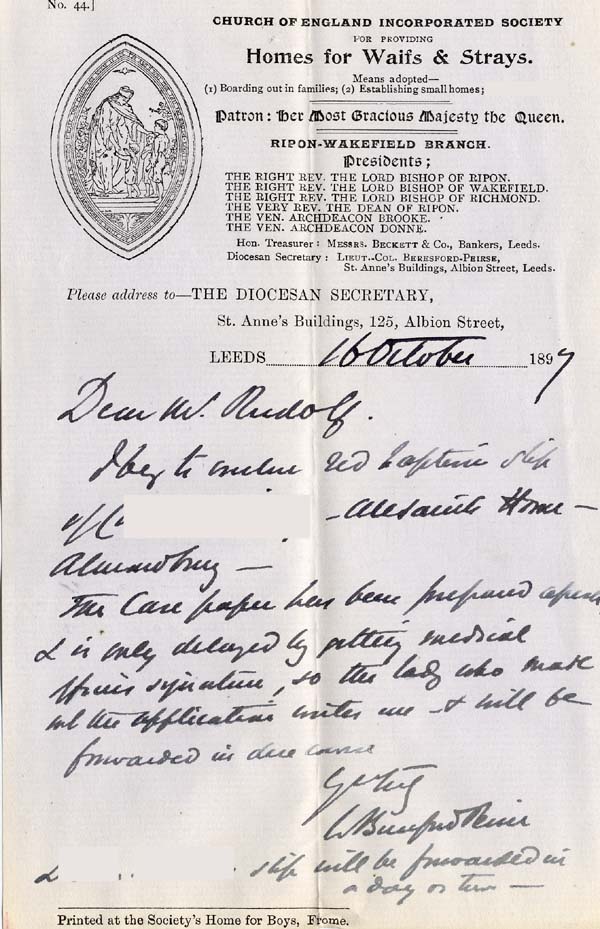 No. 44.]
CHURCH OF ENGLAND INCORPORATED SOCIETY
FOR PROVIDING
Homes for Waifs & Strays.
Means adopted—
(1) Boarding out in families; (2) Establishing small homes;
Patron: Her Most Gracious Majesty the Queen.
RIPON-WAKEFIELD BRANCH.
Presidents;
THE RIGHT REV. THE LORD BISHOP OF RIPON.
THE RIGHT REV. THE LORD BISHOP OF WAKEFIELD.
THE RIGHT REV. THE LORD BISHOP OF RICHMOND.
THE VERY REV. THE DEAN OF RIPON.
THE VEN. ARCHDEACON BROOKE.
THE VEN. ARCHDEACON DONNE.
Hon. Treasurer: MESSRS. BECKETT & Co., Bankers, Leeds.
Diocesan Secretary: LIEUT.-COL. BERESFORD-PEIRSE,
St. Anne's Buildings, Albion Street, Leeds.
Please address to—THE DIOCESAN SECRETARY,
St. Anne's Buildings, 125, Albion Street,
LEEDS 16 October 1897
Dear Mr. Rudolf.
I beg to enclose red baptism slip
of – All Saints Home –
Almondbury –
The Case paper has been prepared
& is only delayed by getting medical
officers signature, so the lady who made
out the application writes me – & will be
forwarded in due course
Yrs trly
W Beresford Peirse
& slip will be forwarded in
a day or two –
Printed at the Society's Home for Boys, Frome.